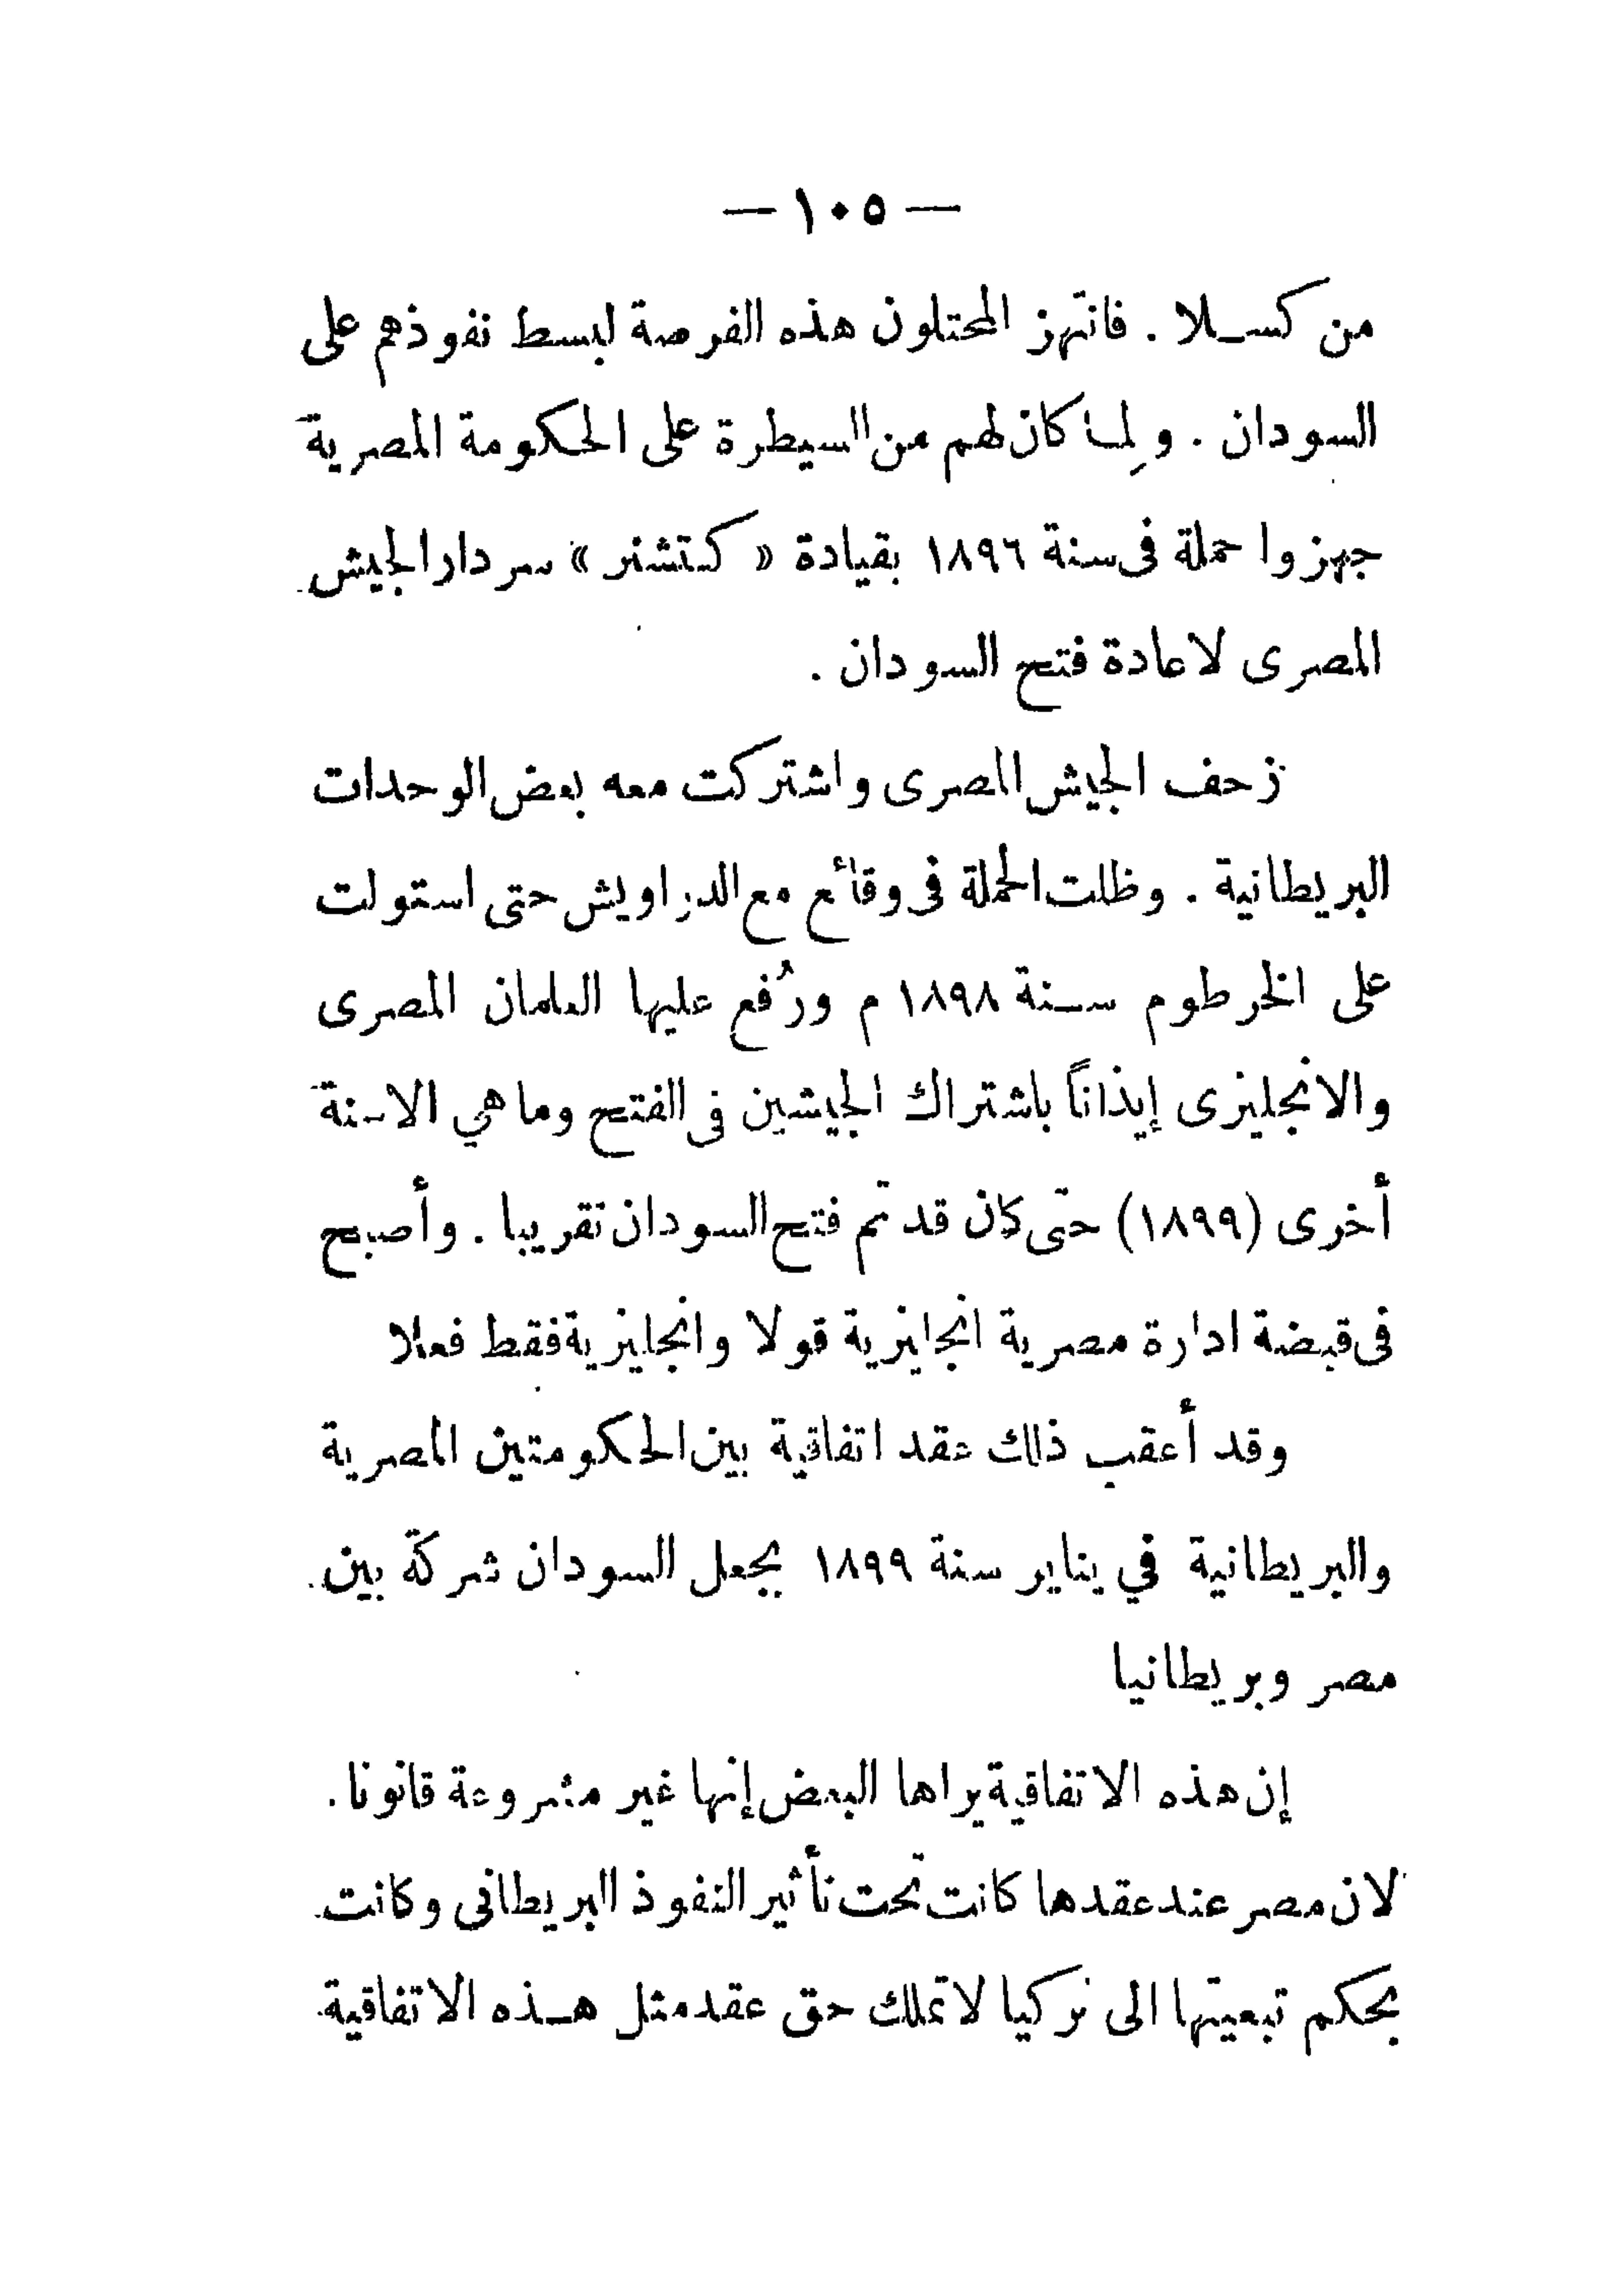 — ١٠٥ —
من كسلا . فانتهز المحتلون هذه الفرصة لبسط نفوذهم على
السودان . ولِما كان لهم من السيطرة على الحكومة المصرية
جهزوا حملة فى سنة ١٨٩٦ بقيادة « كتشنر » سردار الجيش
المصرى لاعادة فتح السودان .
زحف الجيش المصرى واشتركت معه بعض الوحدات
البريطانية . وظلت الحملة فى وقائع مع الدراويش حتى استولت
على الخرطوم سنة ١٨٩٨ م ورُفع عليها العلمان المصرى
والانجليزى إيذاناً باشتراك الجيشين فى الفتح وما هي الا سنة
أخرى (١٨٩٩) حتى كان قد تم فتح السودان تقريبا . وأصبح
فى قبضة ادارة مصرية انجليزية قولا وانجليزية فقط فعلا
وقد أعقب ذلك عقد اتفاقية بين الحكومتين المصرية
والبريطانية في يناير سنة ١٨٩٩ بجعل السودان شركة بين
مصر وبريطانيا
إن هذه الاتفاقية يراها البعض إنها غير مشروعة قانونا .
لان مصر عند عقدها كانت تحت تأثير النفوذ البريطانى وكانت
بحكم تبعيتها الى تركيا لا تملك حق عقد مثل هذه الاتفاقية